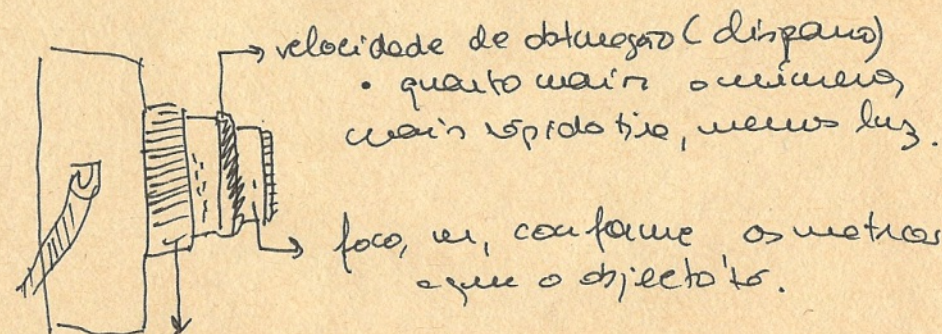 velocidade de obturação (disparo)
• quanto mais o número,
mais rápido tira, menos luz.
foco, m, conforme os metros
a que o objecto 'tá.